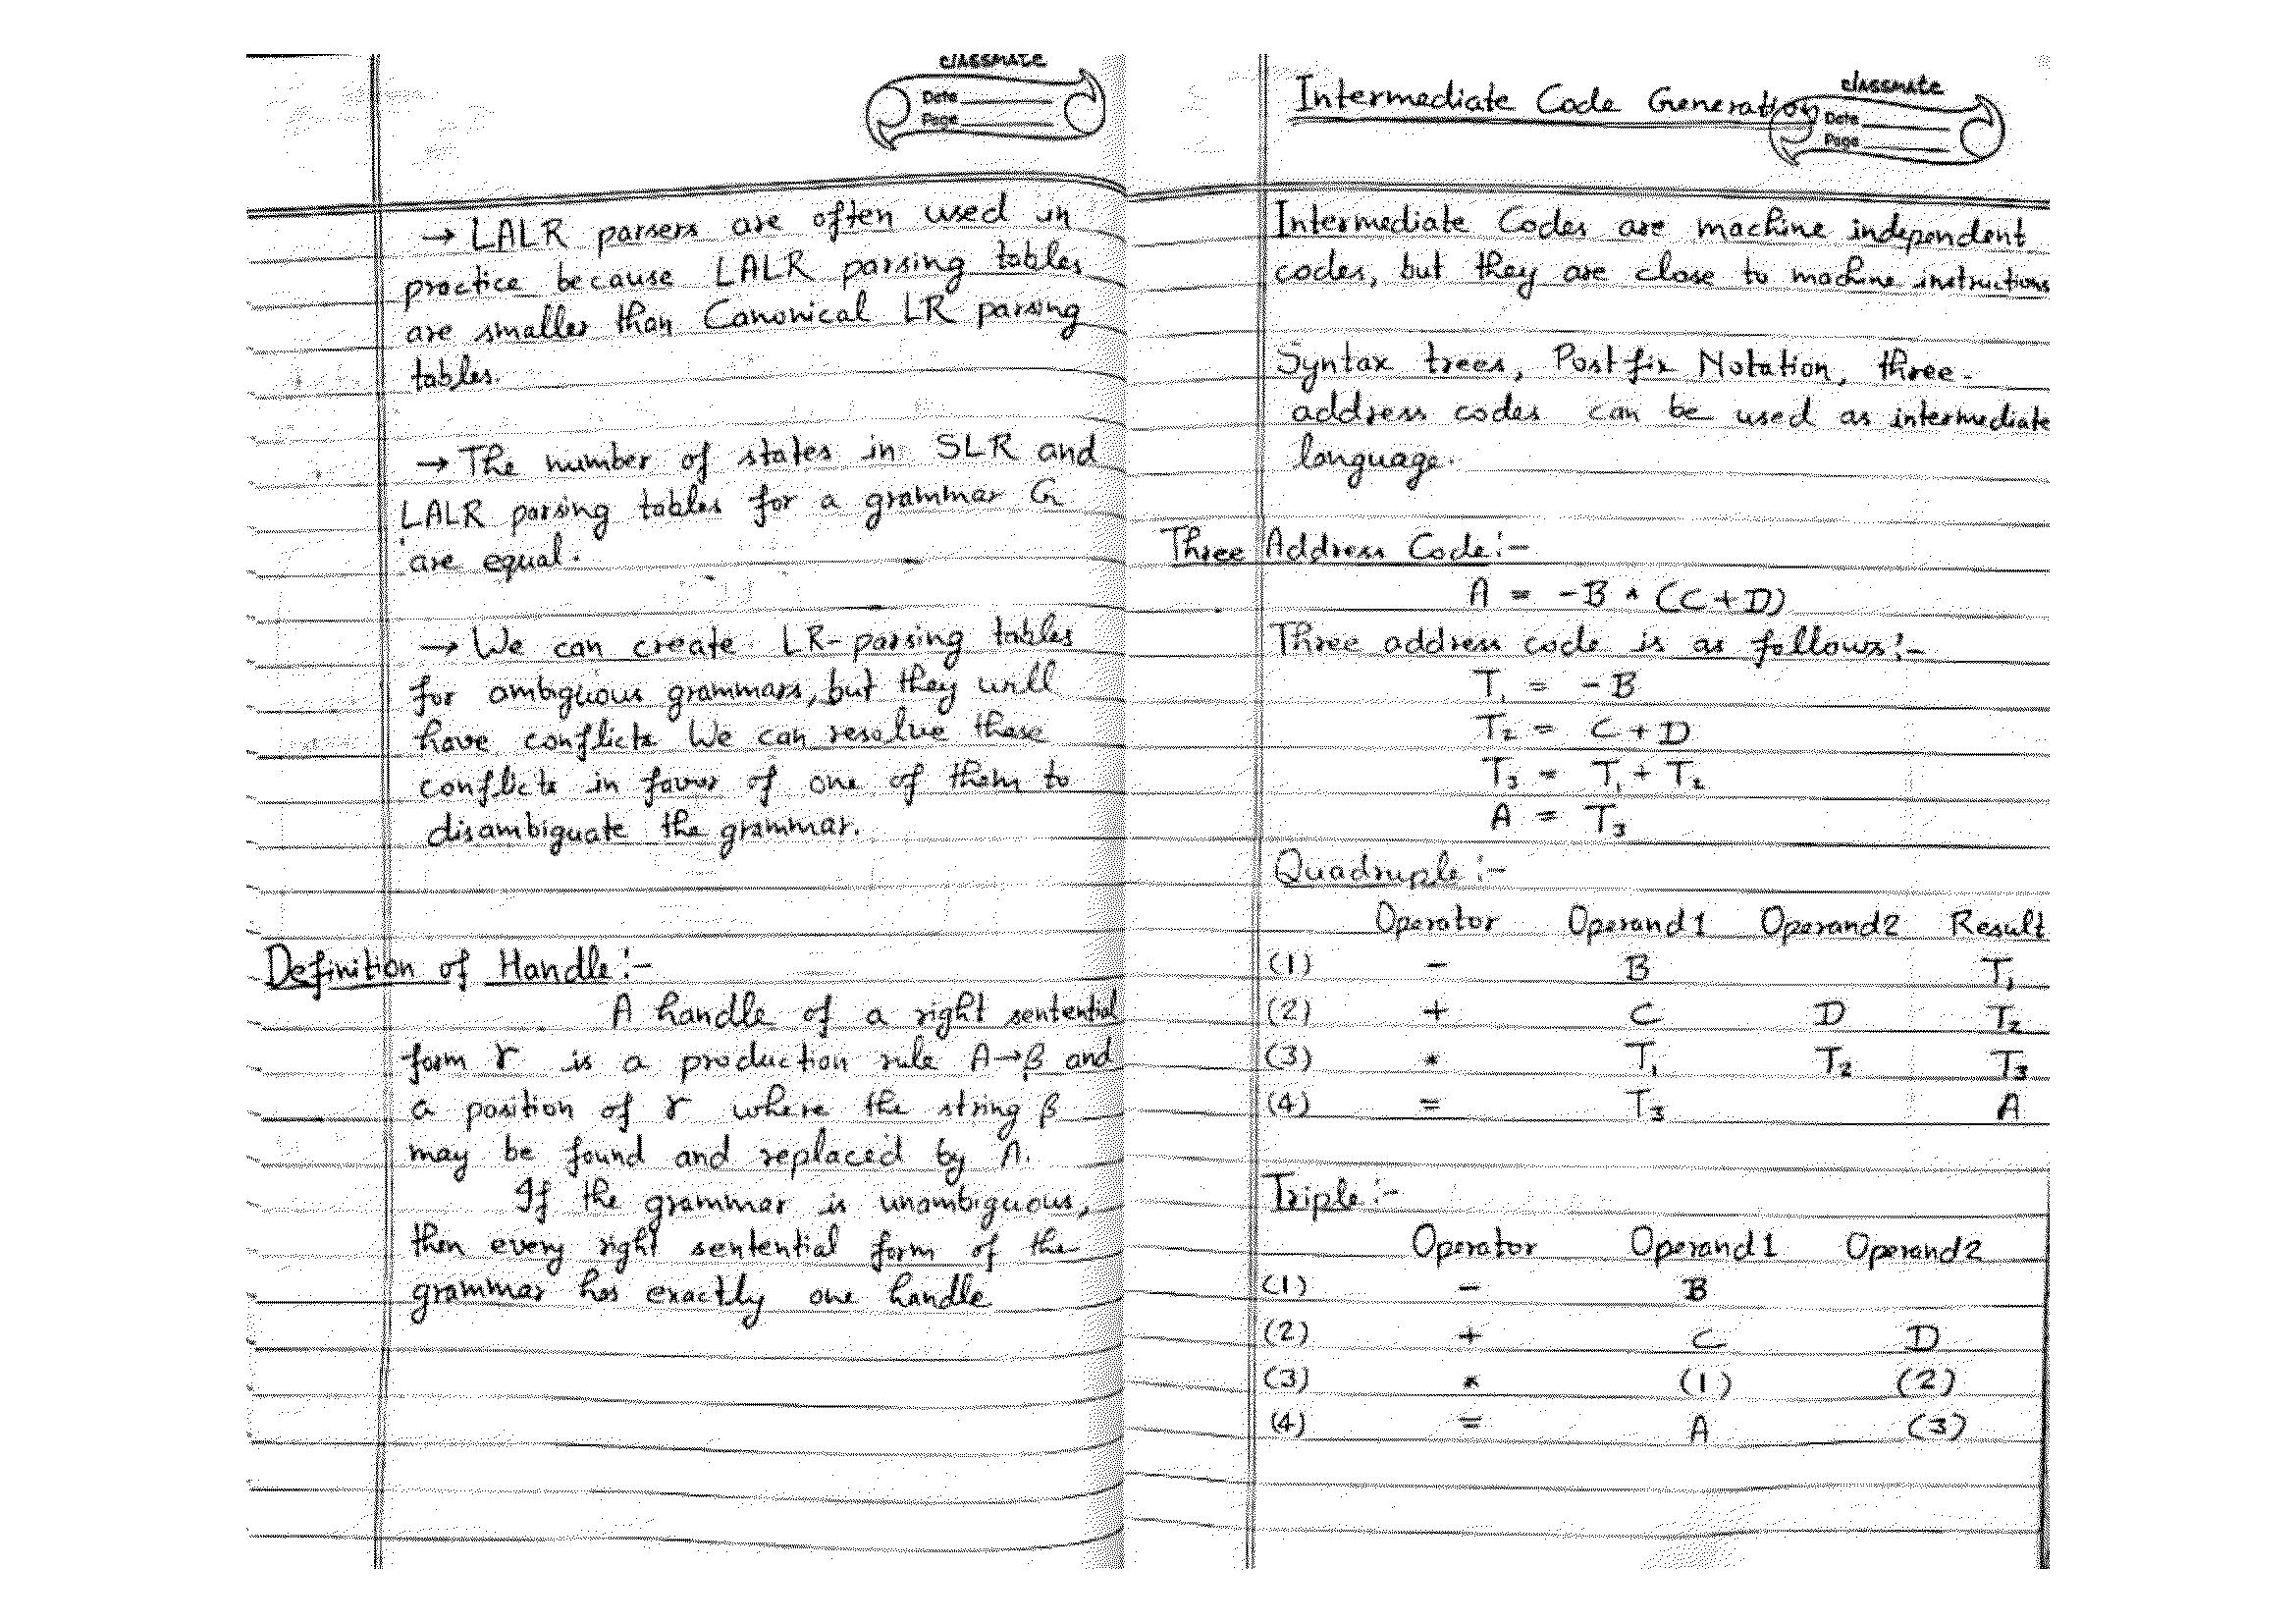 classmate
Date
Page
→ LALR parsers are often used in
practice because LALR parsing tables
are smaller than Canonical LR parsing
tables.
→ The number of states in SLR and
LALR parsing tables for a grammar G
are equal.
→ We can create LR-parsing tables
for ambiguous grammars, but they will
have conflicts We can resolve these
conflicts in favor of one of them to
disambiguate the grammar.
Definition of Handle:-
A handle of a right sentential
form γ is a production rule A→β and
a position of γ where the string β
may be found and replaced by A.
If the grammar is unambiguous,
then every right sentential form of the
grammar has exactly one handle
Intermediate Code Generation
classmate
Date
Page
Intermediate Codes are machine independent
codes, but they are close to machine instructions
Syntax trees, Postfix Notation, three-
address codes can be used as intermediate
language.
Three Address Code:-
A = -B * (C+D)
Three address code is as follows:-
T₁ = -B
T₂ = C+D
T₃ = T₁ + T₂
A = T₃
Quadruple:-
Operator Operand1 Operand2 Result
(1) - B T₁
(2) + C D T₂
(3) * T₁ T₂ T₃
(4) = T₃ A
Triple:-
Operator Operand1 Operand2
(1) - B
(2) + C D
(3) * (1) (2)
(4) = A (3)